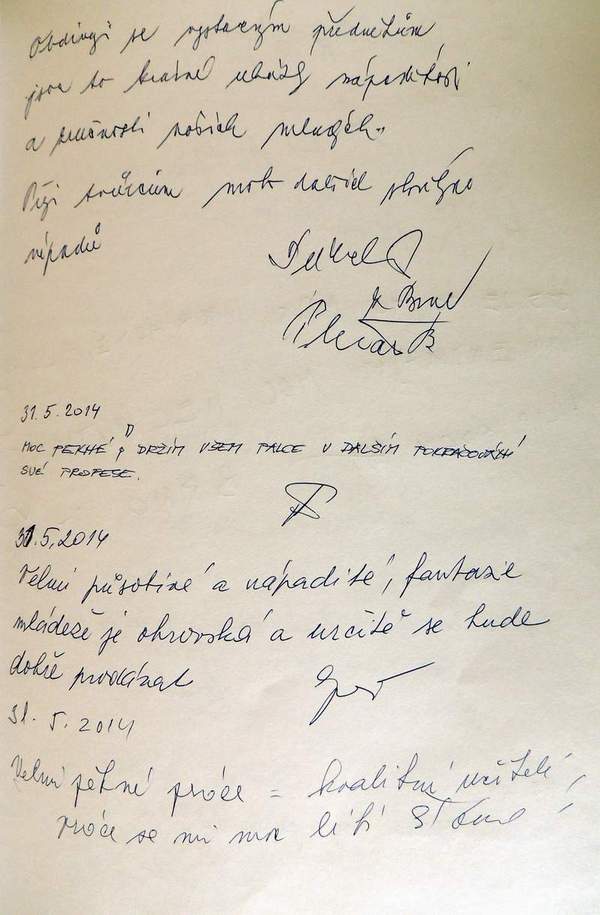 Obdivuji se vystaveným předmětům
jsou to krásné ukázky nápaditosti
a zručnosti našich mladých.
Přeji tvůrcům moc dalších
nápadů
z Brna
31.5.2014
MOC PĚKNÉ, DRŽÍM VŠEM PALCE V DALŠÍM POKRAČOVÁNÍ
SVÉ PROFESE.
31.5.2014
Velmi působivé a nápadité, fantazie
mládeže je obrovská a určitě se bude
dobře prodávat
31. 5. 2014
Velmi pěkné práce = kvalitní učitelé,
práce se mi moc líbí